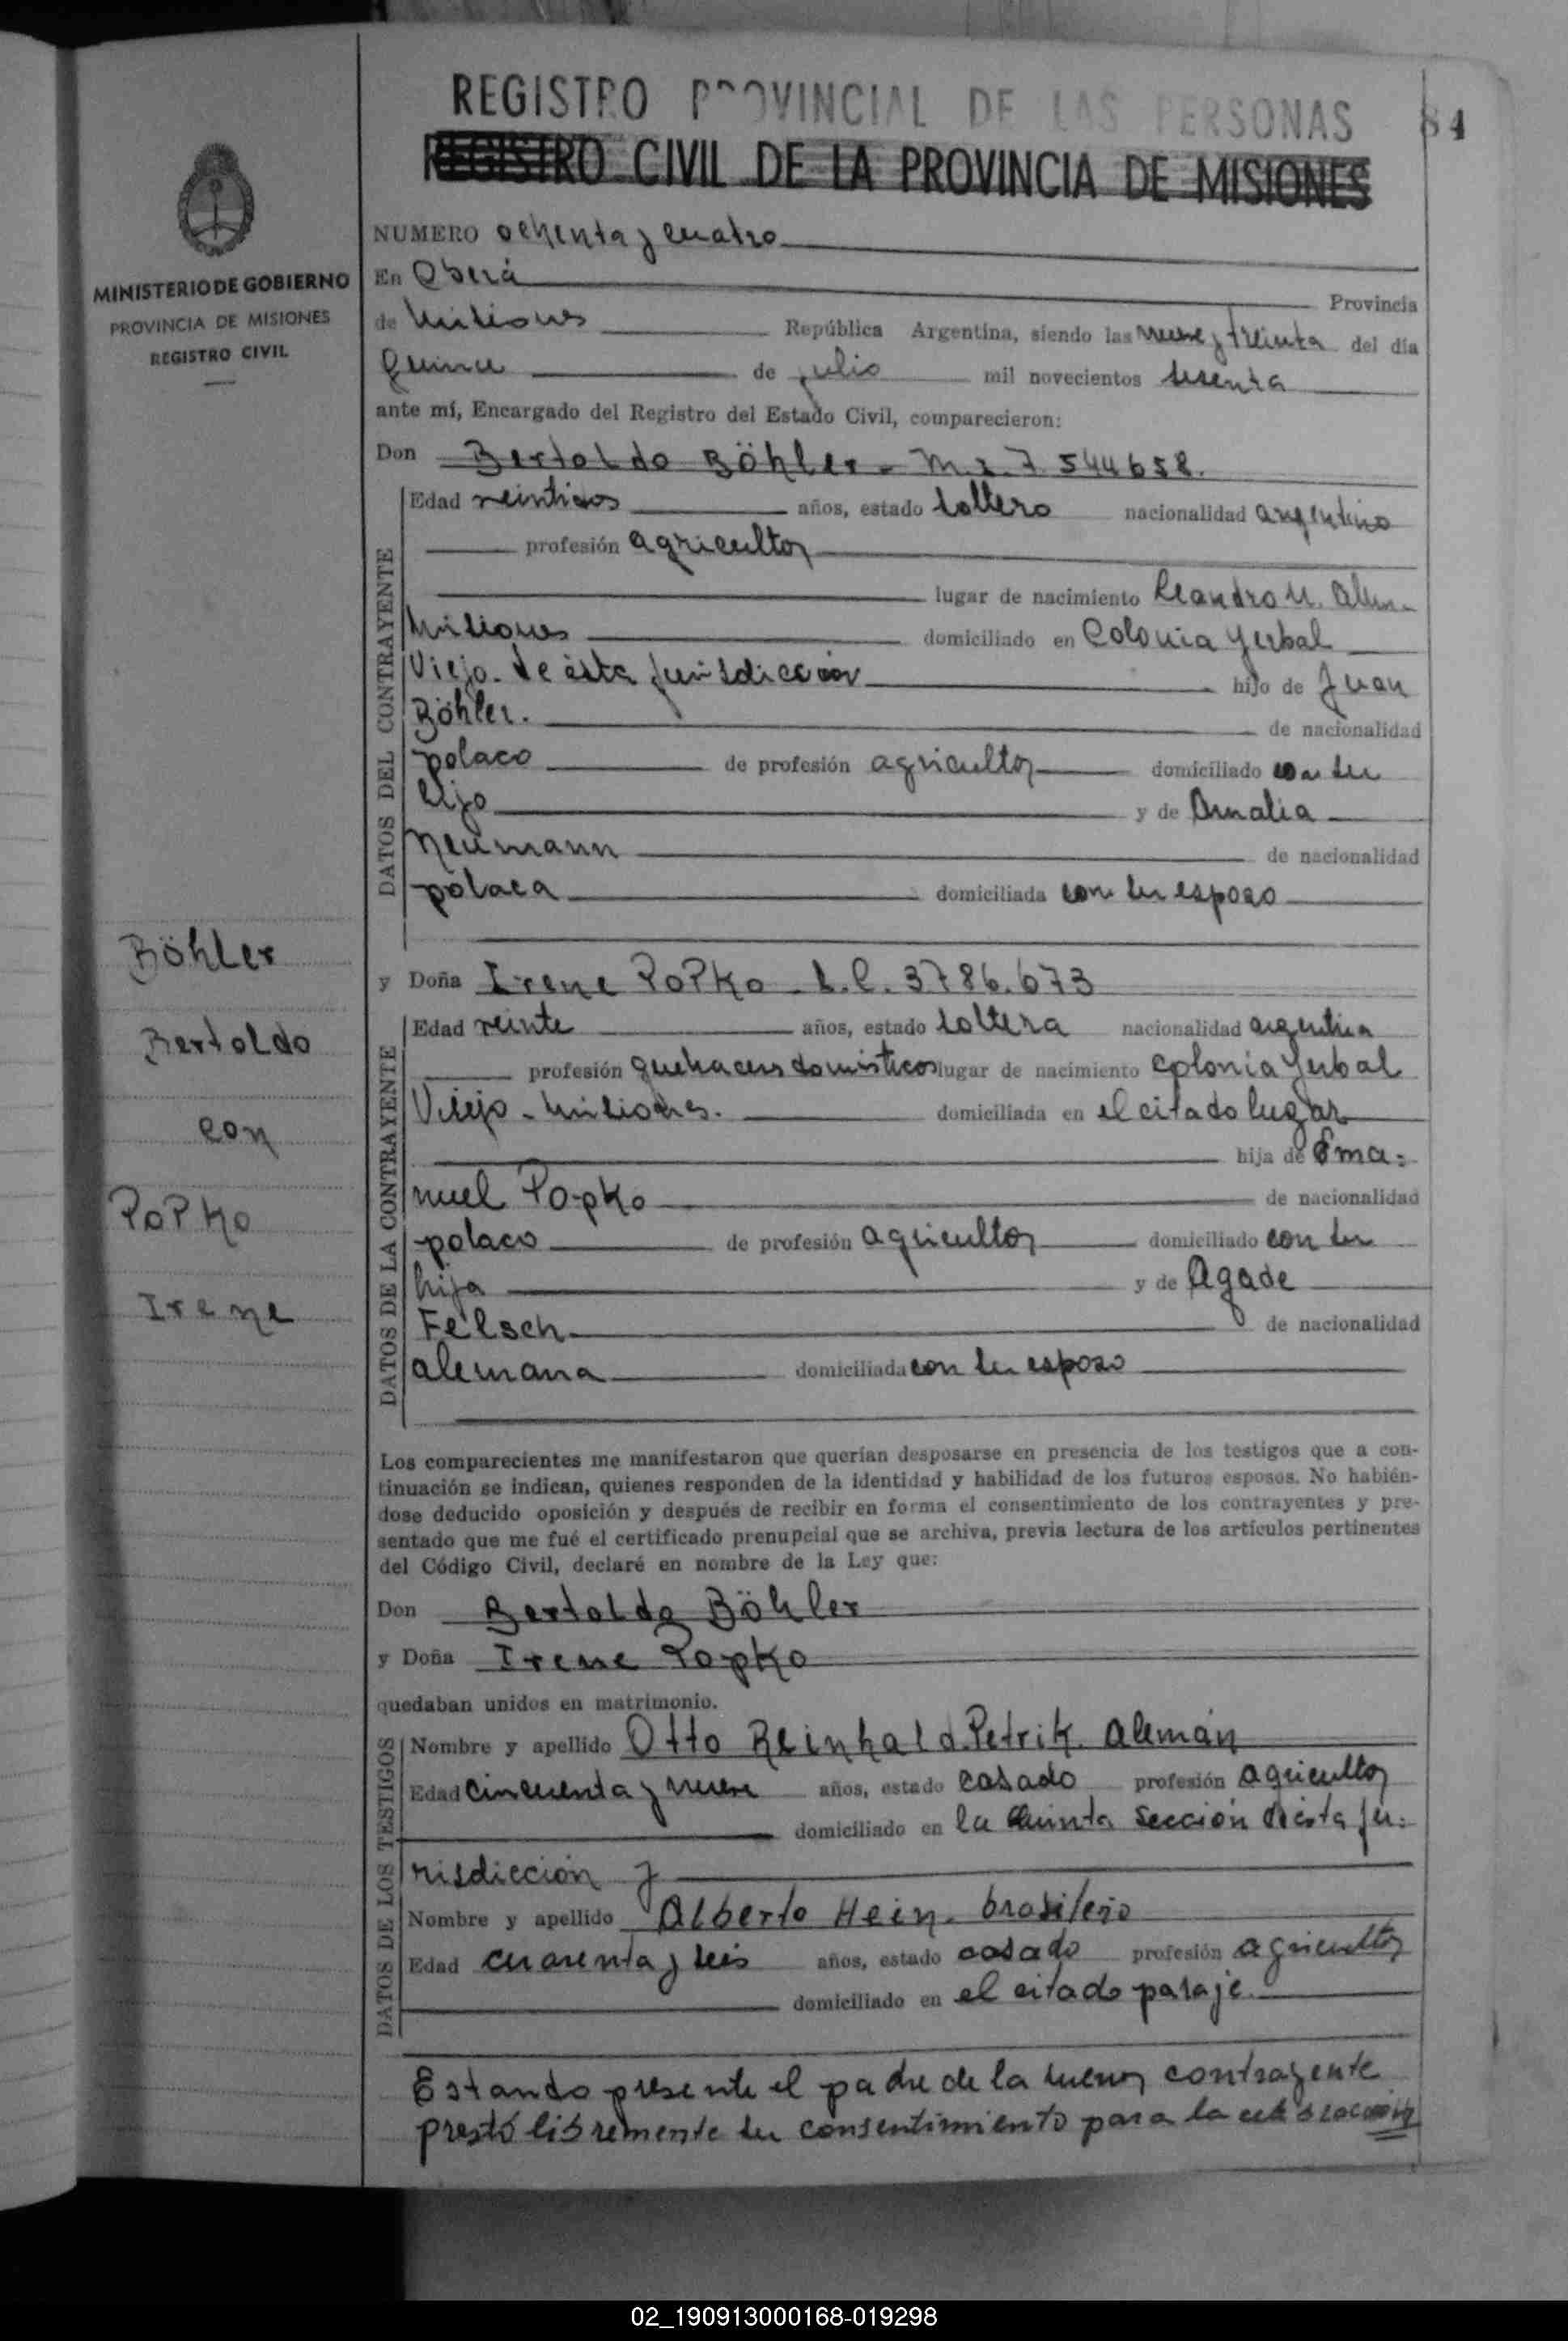 REGISTRO PROVINCIAL DE LAS PERSONAS
84
REGISTRO CIVIL DE LA PROVINCIA DE MISIONES
MINISTERIO DE GOBIERNO
PROVINCIA DE MISIONES
REGISTRO CIVIL
NUMERO ochenta y cuatro
En Oberá Provincia
de Misiones República Argentina, siendo las nueve y treinta del día
quince de julio mil novecientos sesenta
ante mí, Encargado del Registro del Estado Civil, comparecieron:
Don Bertoldo Böhler - M.I. 7.544658.
DATOS DEL CONTRAYENTE
Edad veintidos años, estado soltero nacionalidad argentino
profesión agricultor
lugar de nacimiento Leandro N. Alem-
Misiones domiciliado en Colonia Yerbal
Viejo. de ésta jurisdicción hijo de Juan
Böhler. de nacionalidad
polaco de profesión agricultor domiciliado con su
hijo y de Amalia
Neumann de nacionalidad
polaca domiciliada con su esposo
y Doña Irene PoPko - L.C. 3786.673
DATOS DE LA CONTRAYENTE
Edad veinte años, estado soltera nacionalidad argentina
profesión quehaceres domésticos lugar de nacimiento Colonia Yerbal
Viejo - Misiones. domiciliada en el citado lugar
hija de Ema=
nuel Popko de nacionalidad
polaco de profesión agricultor domiciliado con su
hija y de Agade
Felsch de nacionalidad
alemana domiciliada con su esposo
Böhler
Bertoldo
con
PoPko
Irene
Los comparecientes me manifestaron que querían desposarse en presencia de los testigos que a con-
tinuación se indican, quienes responden de la identidad y habilidad de los futuros esposos. No habién-
dose deducido oposición y después de recibir en forma el consentimiento de los contrayentes y pre-
sentado que me fué el certificado prenupcial que se archiva, previa lectura de los artículos pertinentes
del Código Civil, declaré en nombre de la Ley que:
Don Bertoldo Böhler
y Doña Irene Popko
quedaban unidos en matrimonio.
DATOS DE LOS TESTIGOS
Nombre y apellido Otto Reinhald Petrik. Alemán
Edad cincuenta y nueve años, estado casado profesión agricultor
domiciliado en la Quinta Sección d'ésta ju=
risdicción y
Nombre y apellido Alberto Hein. brasileño
Edad cuarenta y seis años, estado casado profesión agricultor
domiciliado en el citado paraje.
Estando presente el padre de la menor contrayente
prestó libremente su consentimiento para la celebración
02_190913000168-019298